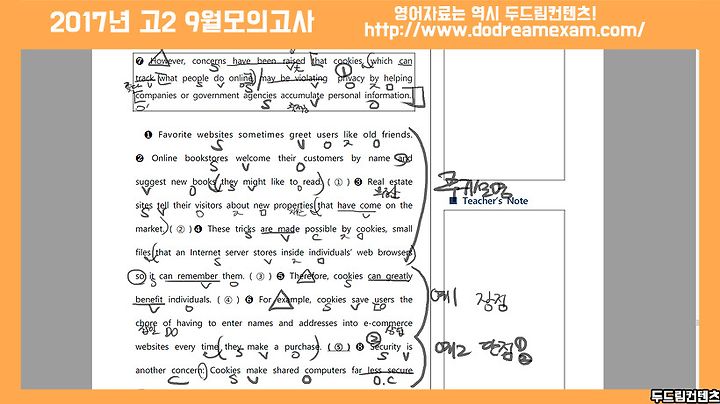 2017년 고2 9월모의고사
영어자료는 역시 두드림컨텐츠!
http://www.dodreamexam.com/
❼ However, concerns have been raised that cookies, which can
track what people do online, may be violating privacy by helping
companies or government agencies accumulate personal information.
❶ Favorite websites sometimes greet users like old friends.
❷ Online bookstores welcome their customers by name and
suggest new books they might like to read. ( ① ) ❸ Real estate
sites tell their visitors about new properties that have come on the
market. ( ② ) ❹ These tricks are made possible by cookies, small
files that an Internet server stores inside individuals' web browsers
so it can remember them. ( ③ ) ❺ Therefore, cookies can greatly
benefit individuals. ( ④ ) ❻ For example, cookies save users the
chore of having to enter names and addresses into e-commerce
websites every time they make a purchase. ( ⑤ ) ❽ Security is
another concern: Cookies make shared computers far less secure
■ Teacher's Note
예1 장점
예2 단점
두드림컨텐츠